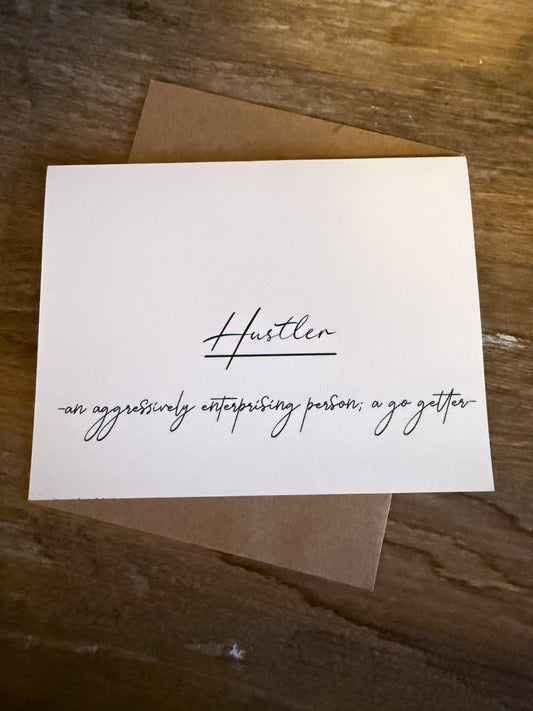 Hustler
-an aggressively enterprising person; a go getter-